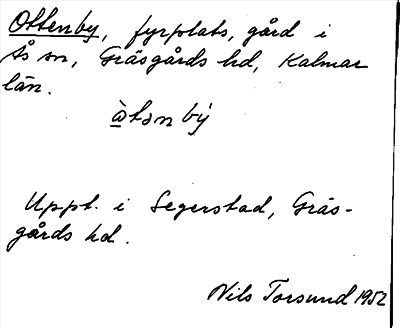 Ottenby, fyrplats, gård i
Ås sn, Gräsgårds hd, Kalmar
län.
å̀tən bý
Uppt. i Segerstad, Gräs-
gårds hd.
Nils Torsund 1952